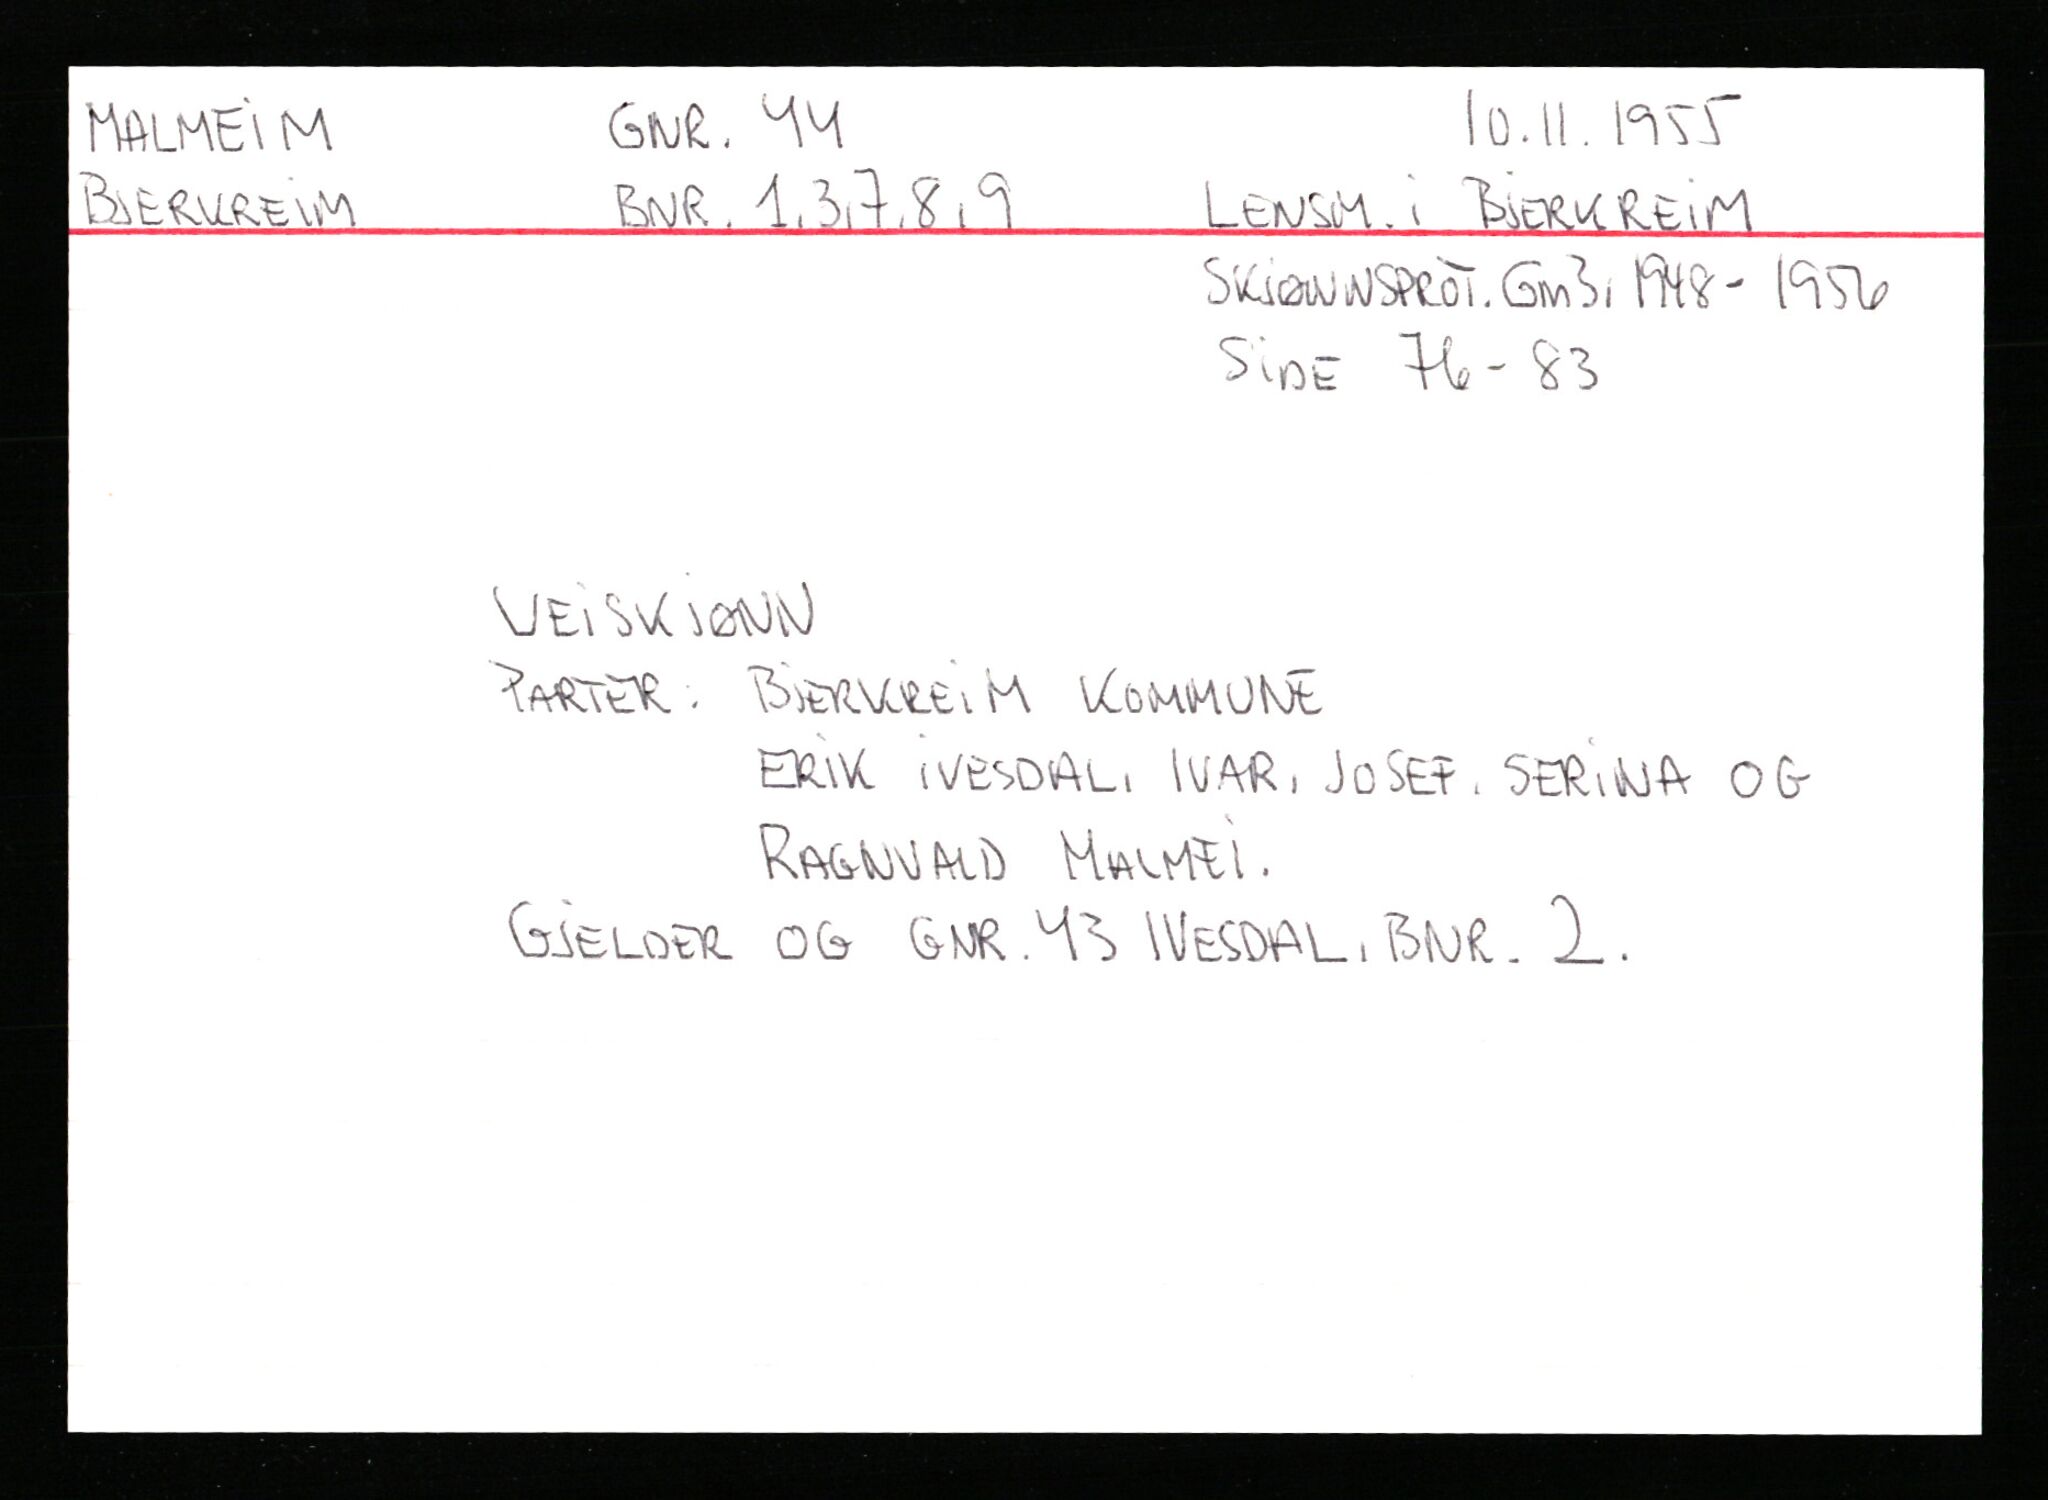 MALMEIM GNR. 44 10.11.1955
BJERKREIM BNR. 1,3,7,8,9 LENSM. i BJERKREIM
SKJØNNSPROT. Gm3, 1948-1956
SIDE 76-83
VEISKJØNN
PARTER: BJERKREIM KOMMUNE
ERIK IVESDAL, IVAR, JOSEF, SERINA OG
RAGNVALD MALMEI.
GJELDER OG GNR. 43 IVESDAL, BNR. 2.